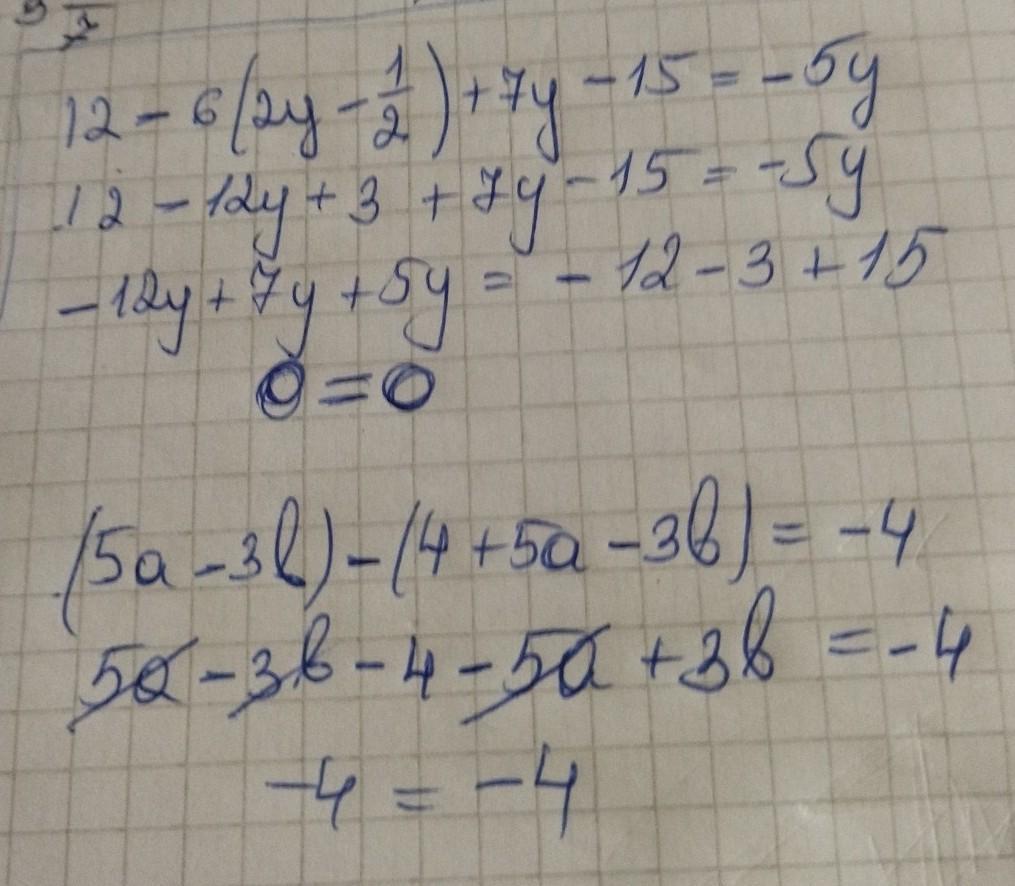 12 - 6(2y - 1/2) + 7y - 15 = -5y
12 - 12y + 3 + 7y - 15 = -5y
-12y + 7y + 5y = -12 - 3 + 15
0 = 0
(5a - 3b) - (4 + 5a - 3b) = -4
5a - 3b - 4 - 5a + 3b = -4
-4 = -4